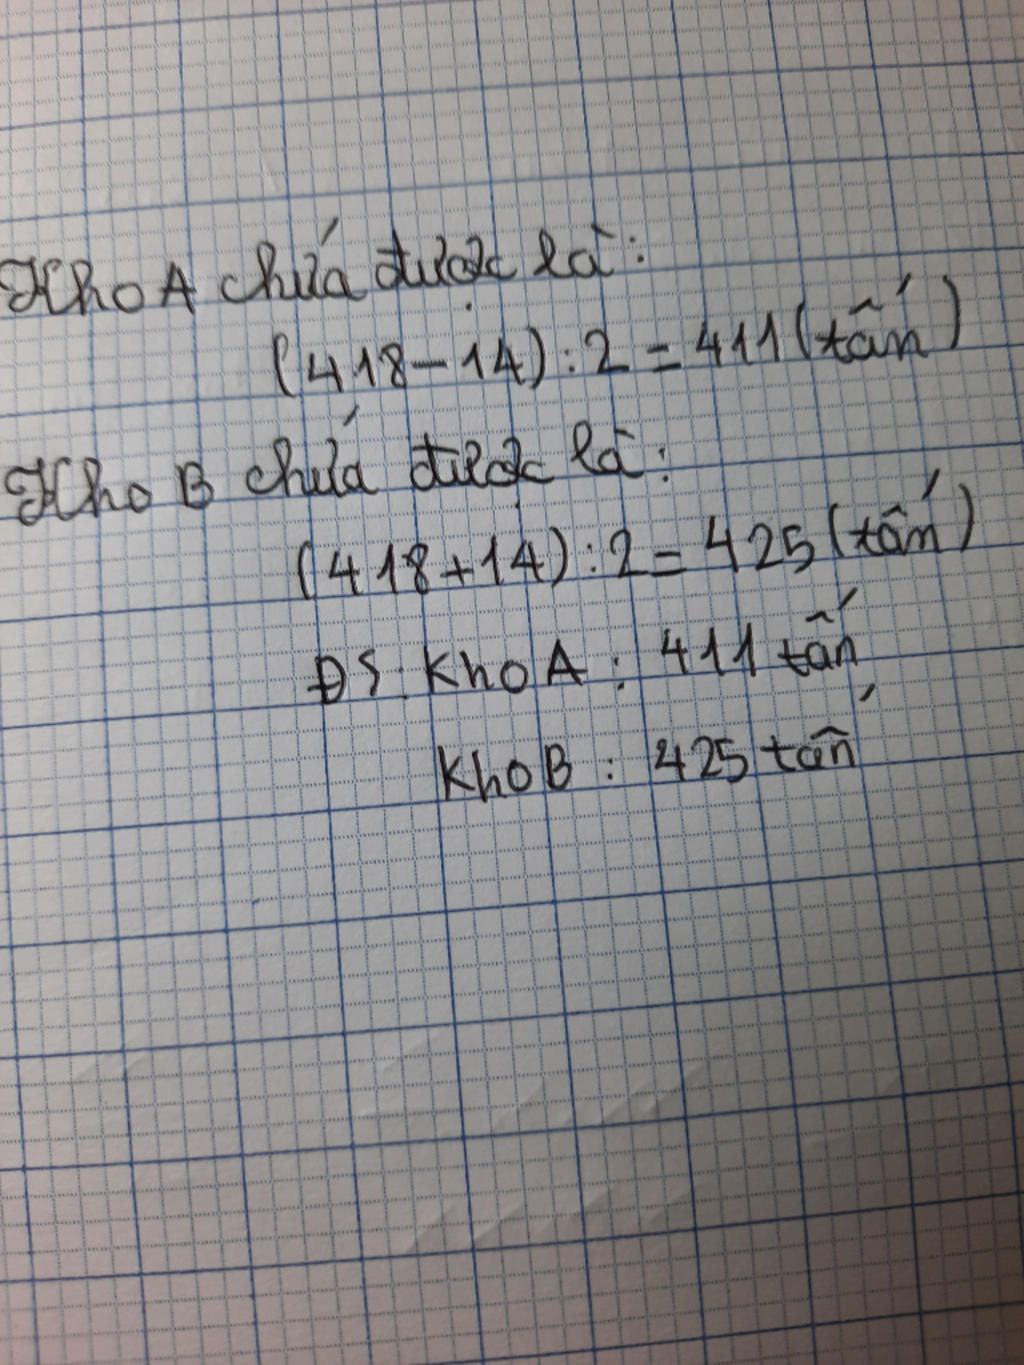 Kho A chứa được là:
(418-14):2=411(tấn)
Kho B chứa được là:
(418+14):2=425(tấn)
ĐS: Kho A: 411 tấn
Kho B: 425 tấn